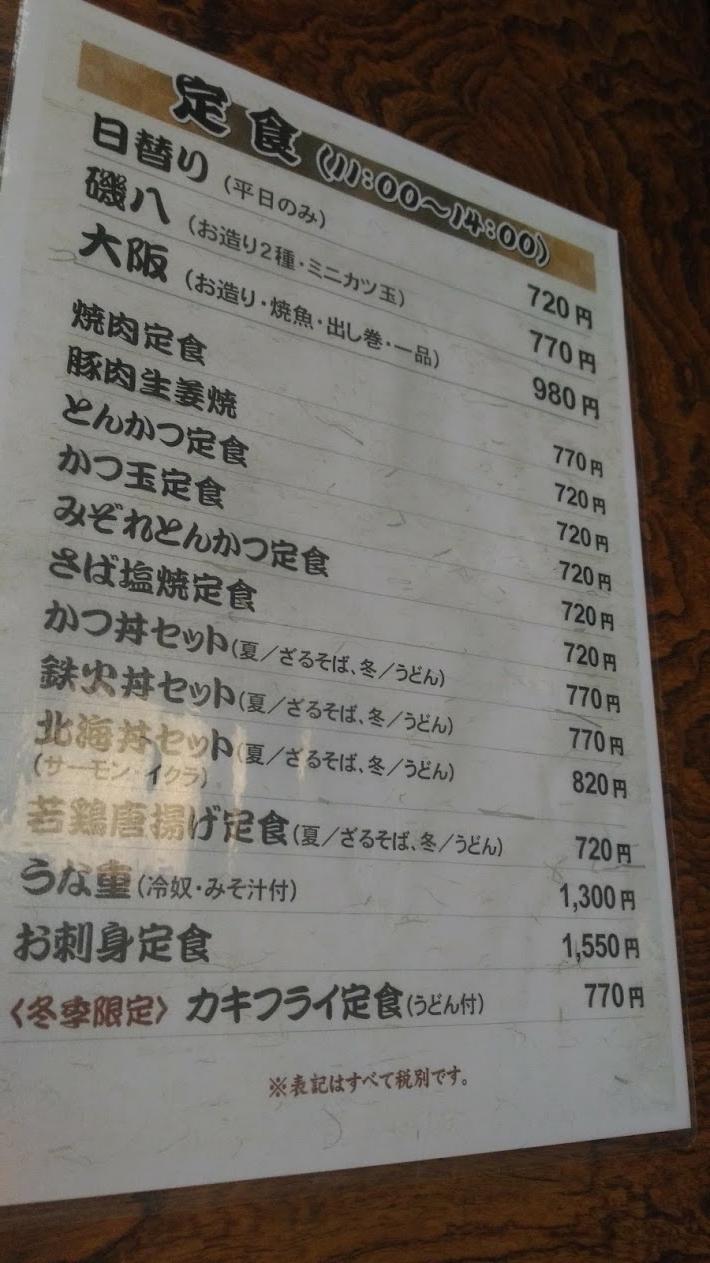 定食 (11:00～14:00)
日替り (平日のみ) 720円
磯八 (お造り2種・ミニカツ玉) 770円
大阪 (お造り・焼魚・出し巻・一品) 980円
焼肉定食 770円
豚肉生姜焼 720円
とんかつ定食 720円
かつ玉定食 720円
みぞれとんかつ定食 720円
さば塩焼定食 720円
かつ丼セット(夏／ざるそば、冬／うどん) 770円
鉄火丼セット(夏／ざるそば、冬／うどん) 770円
北海丼セット(夏／ざるそば、冬／うどん) 820円
(サーモン・イクラ)
若鶏唐揚げ定食(夏／ざるそば、冬／うどん) 720円
うな重(冷奴・みそ汁付) 1,300円
お刺身定食 1,550円
〈冬季限定〉 カキフライ定食(うどん付) 770円
※表記はすべて税別です。